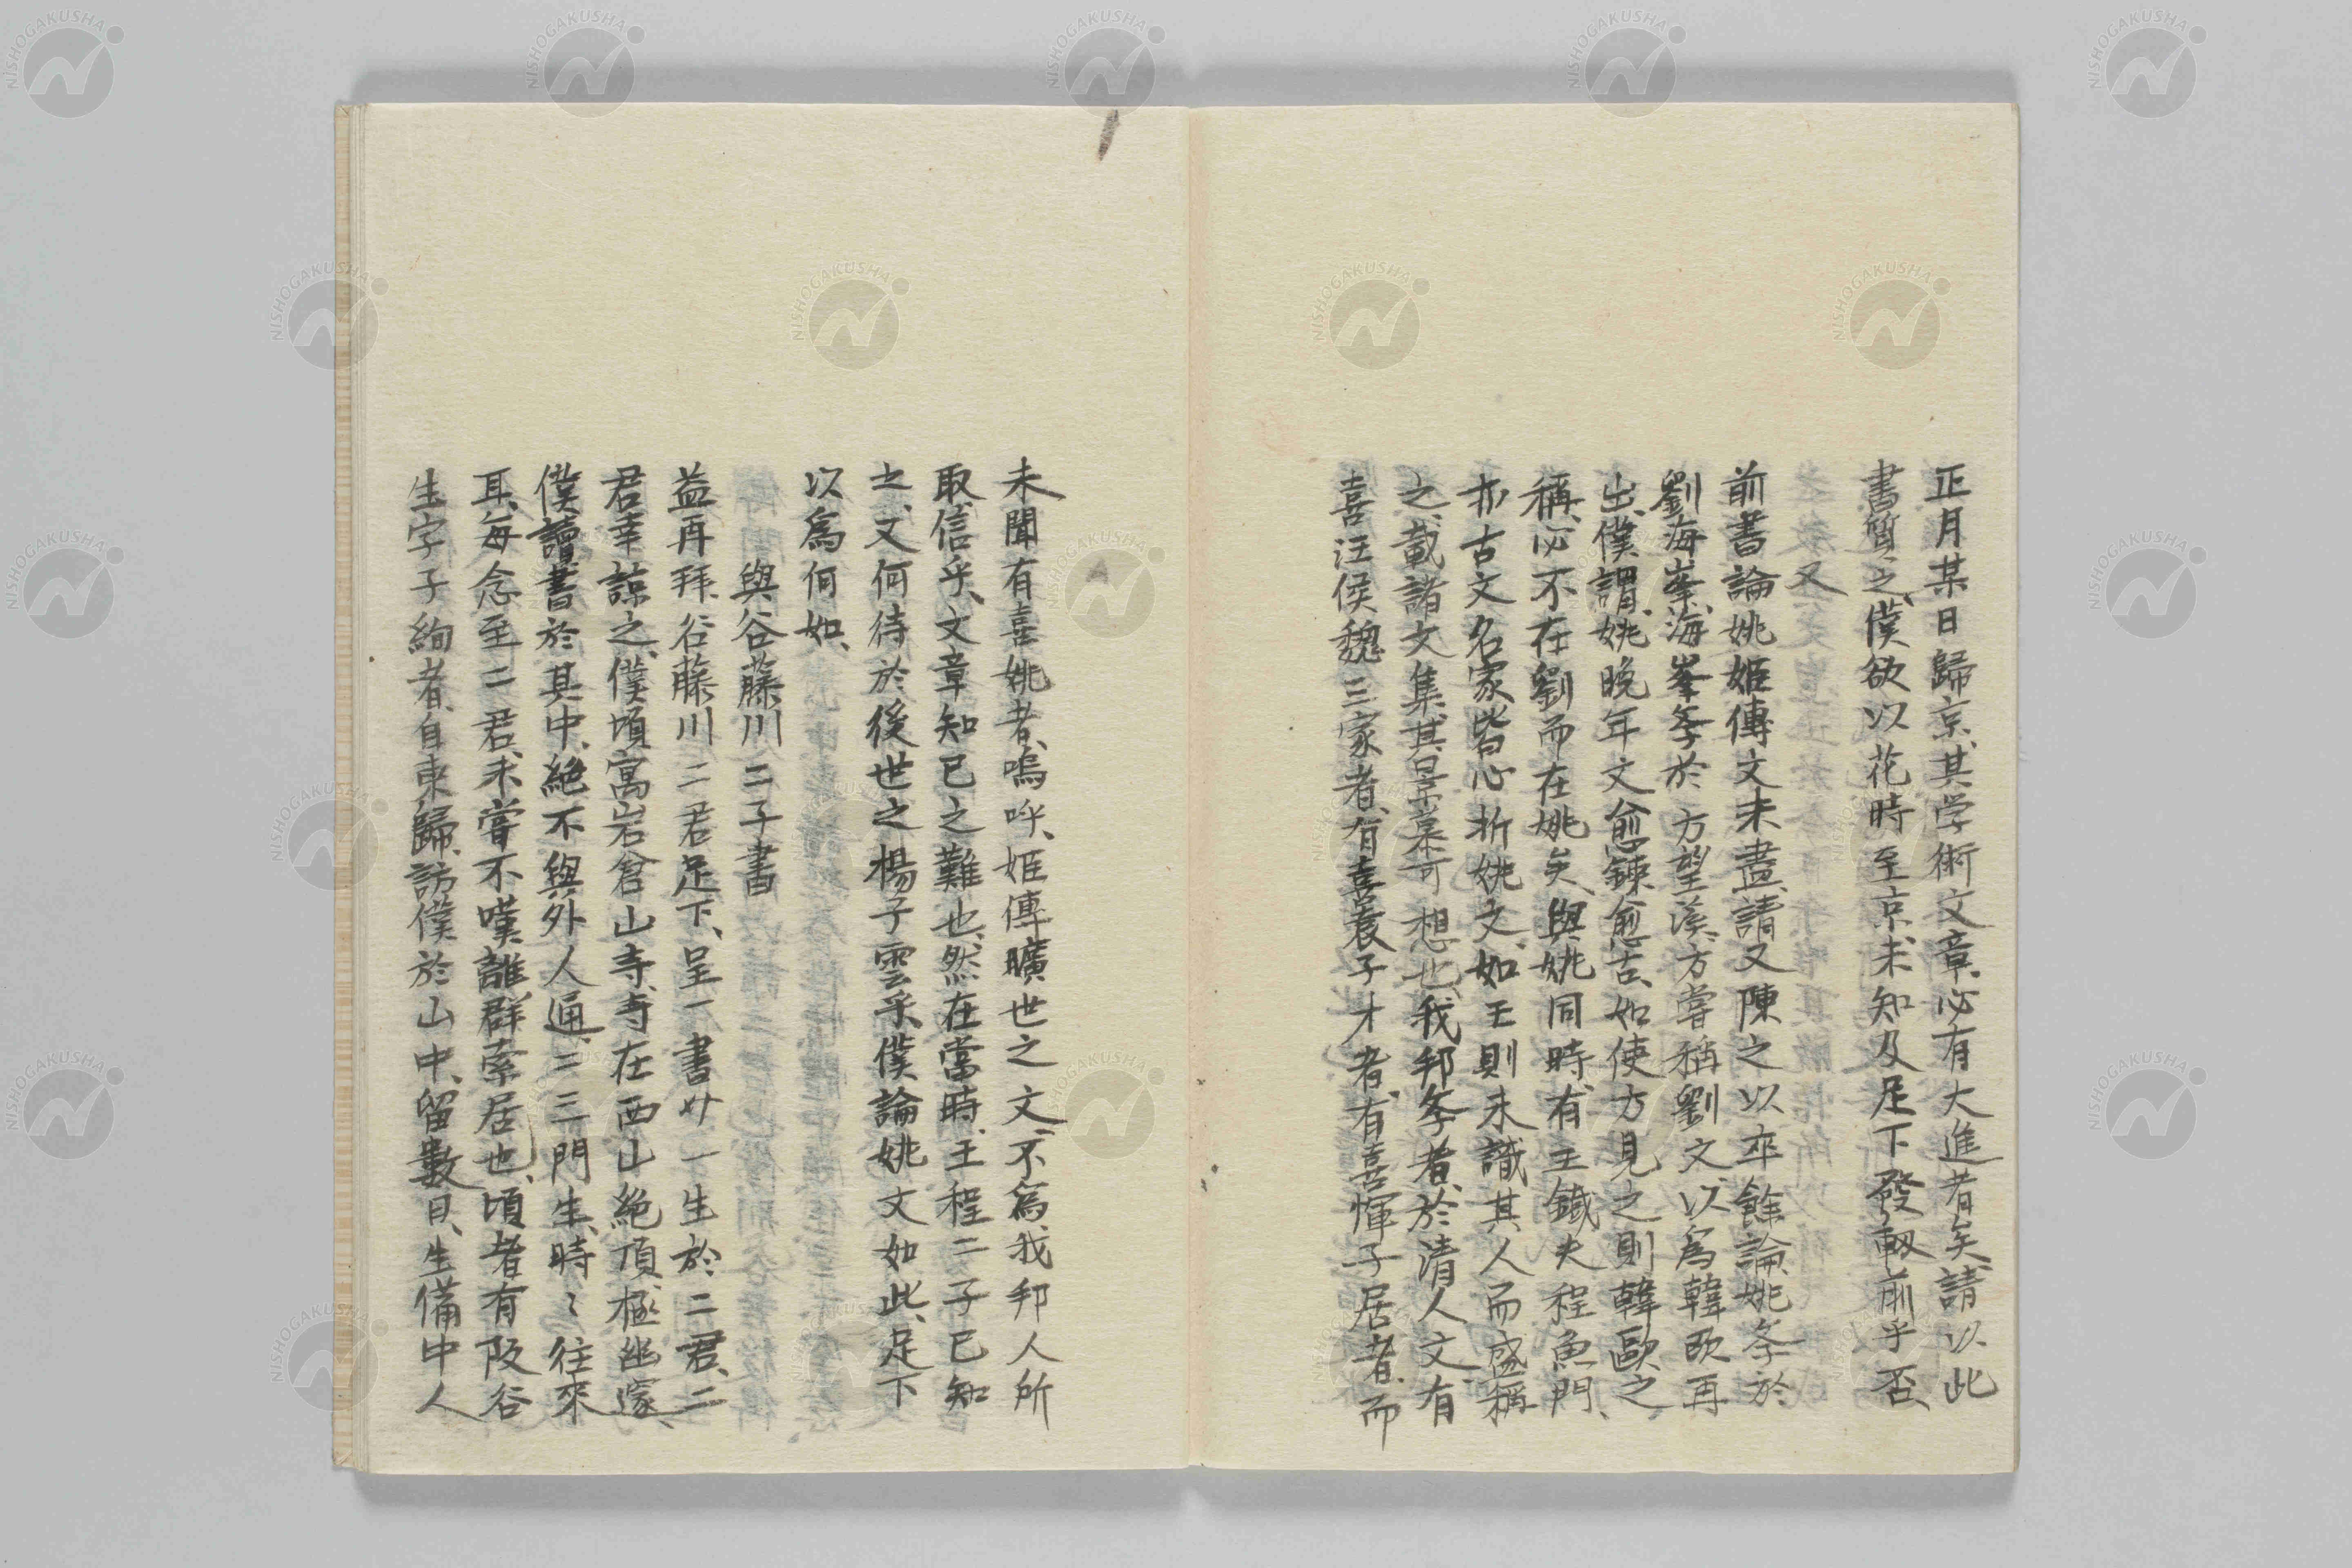 正月某日歸京、其学術文章、必有大進者矣、請以此
書質之、僕欲以花時至京、未知及足下發軔前乎否、
又
前書論姚姬傳文未盡、請又陳之以卒餘論、姚学於
劉海峯、海峯学於方望溪、方嘗稱劉文、以為韓欧再
出、僕謂、姚晚年文愈鍊愈古、如使方見之則韓歐之
稱、必不在劉而在姚矣、與姚同時、有王鐵夫程魚門、
亦古文名家、皆心折姚文、如王則未識其人而盛稱
之、載諸文集、其景慕可想也、我邦学者、於清人文、有
喜汪侯魏三家者、有喜袁子才者、有喜惲子居者、而
未聞有喜姚者、嗚呼、姬傳曠世之文、不為我邦人所
取、信乎、文章知己之難也、然在當時、王程二子已知
之、又何待於後世之楊子雲乎、僕論姚文如此、足下
以為何如、
與谷藤川二子書
益再拜、谷藤川二君足下、呈一書廾一生於二君、二
君幸諒之、僕頃寓岩倉山寺、寺在西山絶頂、極幽邃、
僕讀書於其中、絶不與外人通、二三門生、時々往來
耳、每念至二君、未嘗不嘆離群索居也、頃者有阪谷
生字子絢者、自東歸、訪僕於山中、留數日、生備中人